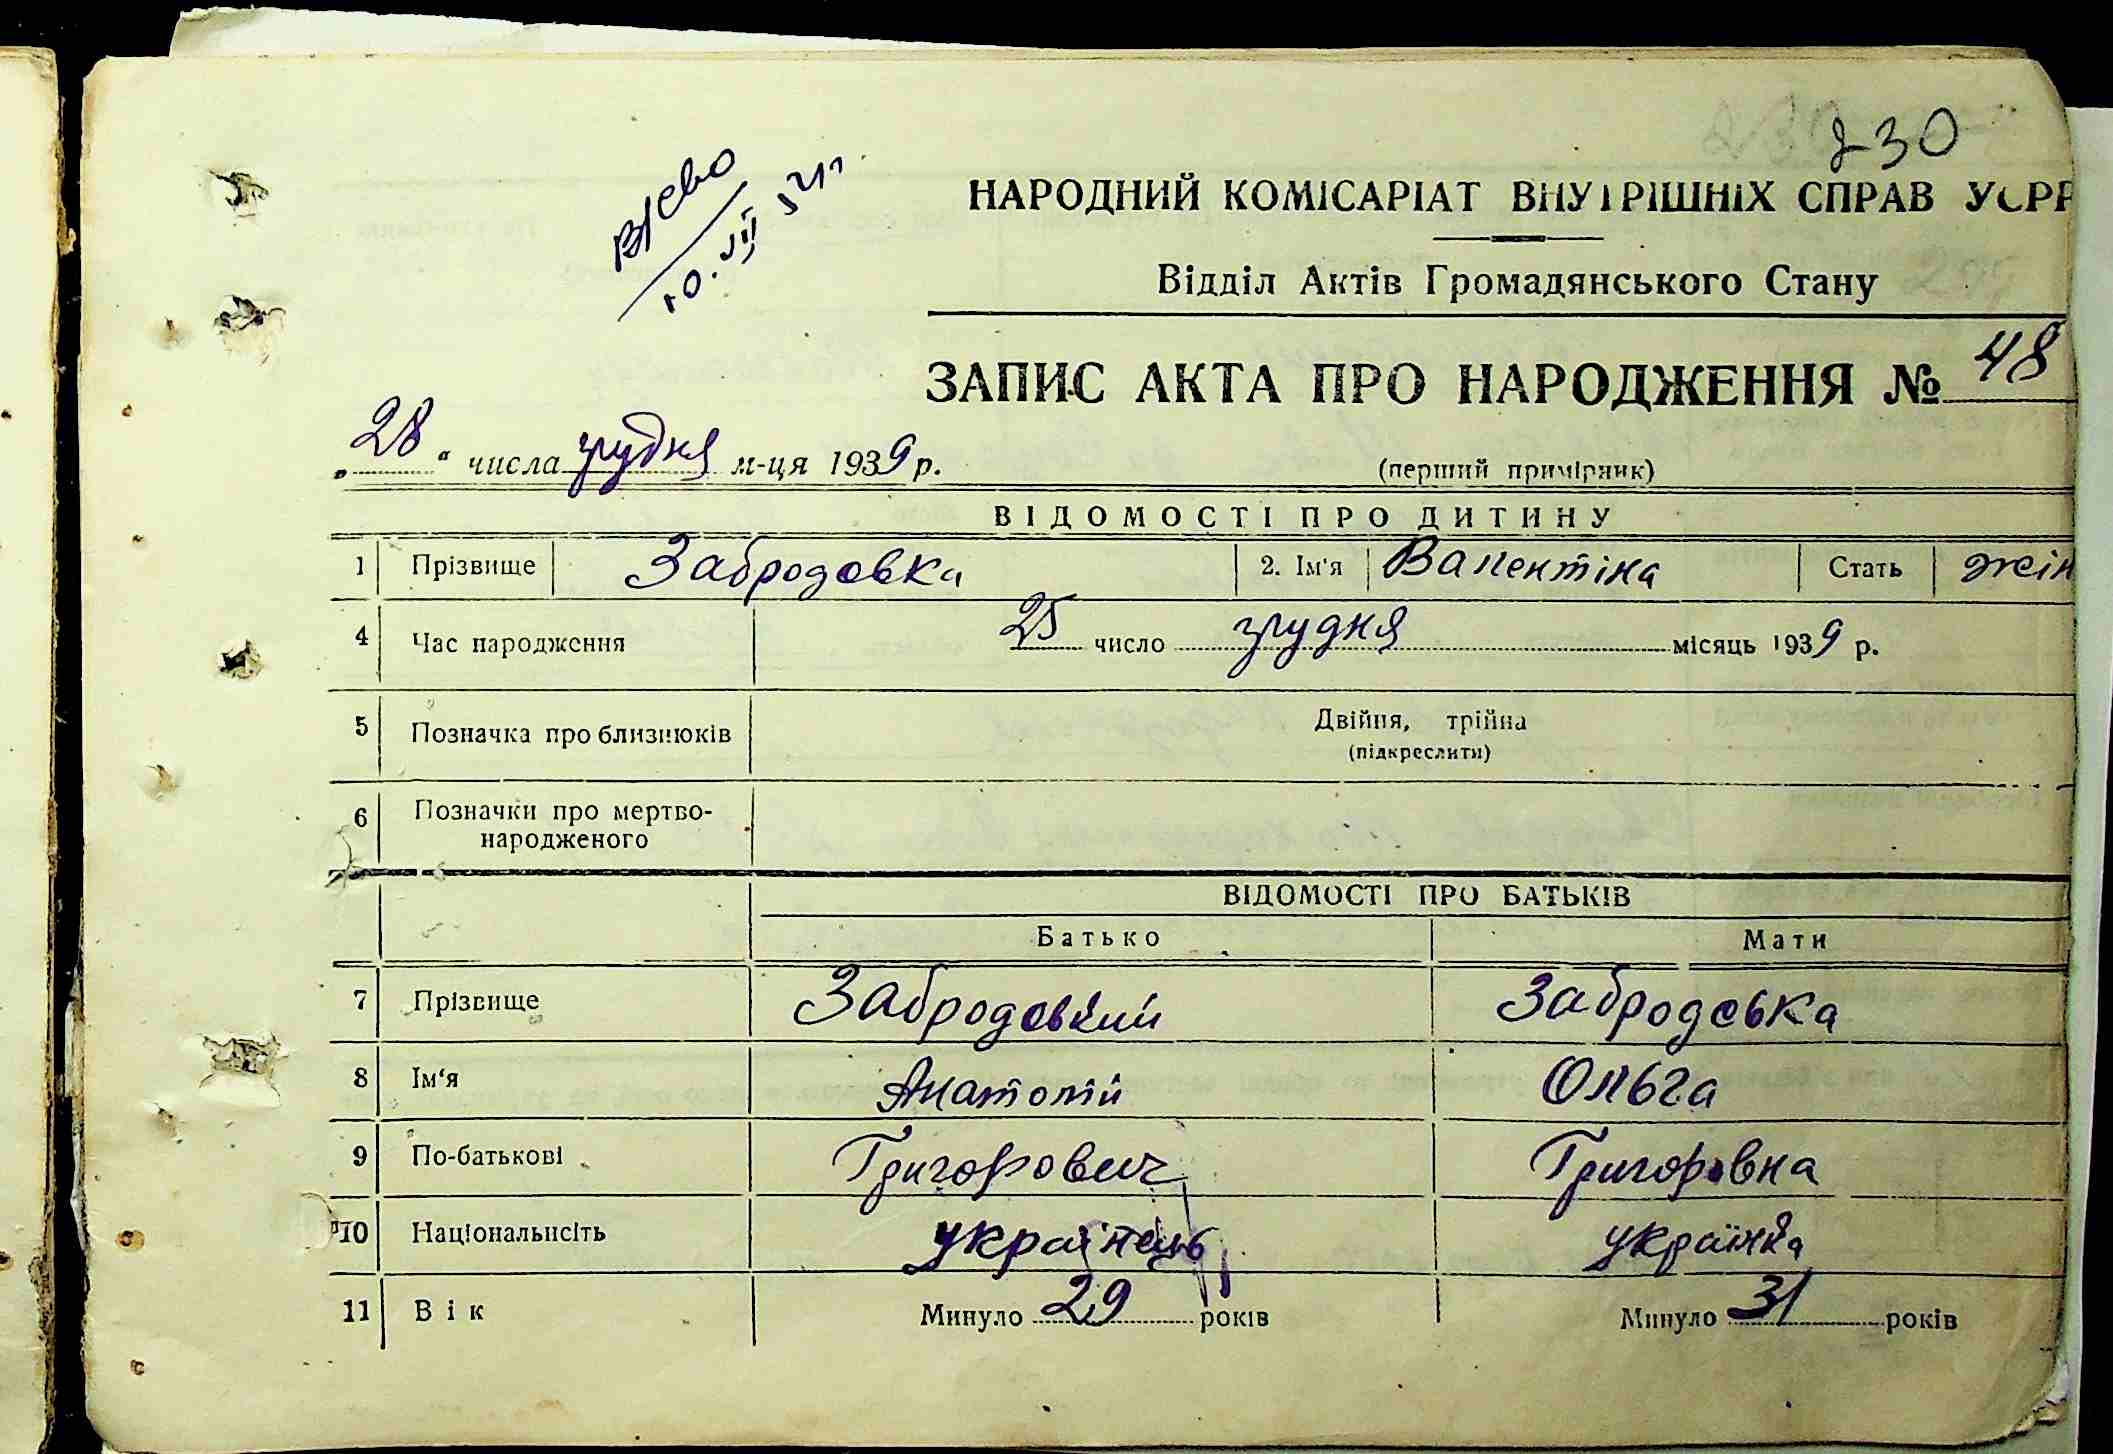 230
НАРОДНИЙ КОМІСАРІАТ ВНУТРІШНІХ СПРАВ УСРР
Відділ Актів Громадянського Стану
ЗАПИС АКТА ПРО НАРОДЖЕННЯ № 48
„28“ числа грудня м-ця 1939 р.
(перший примірник)
ВІДОМОСТІ ПРО ДИТИНУ
1 Прізвище Забродовка 2. Ім'я Валентіна Стать жін
4 Час народження 25 число грудня місяць 1939 р.
5 Позначка про близнюків Двійня, трійня
(підкреслити)
6 Позначки про мертво-
народженого
ВІДОМОСТІ ПРО БАТЬКІВ
Батько Мати
7 Прізвище Забродовкий Забродовка
8 Ім'я Анатолій Ольга
9 По-батькові Григорович Григоровна
10 Національність українець українка
11 Вік Минуло 29 років Минуло 31 років